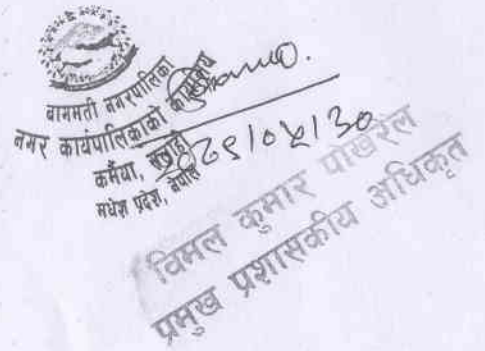 बागमती नगरपालिका
नगर कार्यपालिकाको कार्यालय
कर्मैया, सर्लाही
मधेश प्रदेश, नेपाल
विमल कुमार पोखरेल
प्रमुख प्रशासकीय अधिकृत